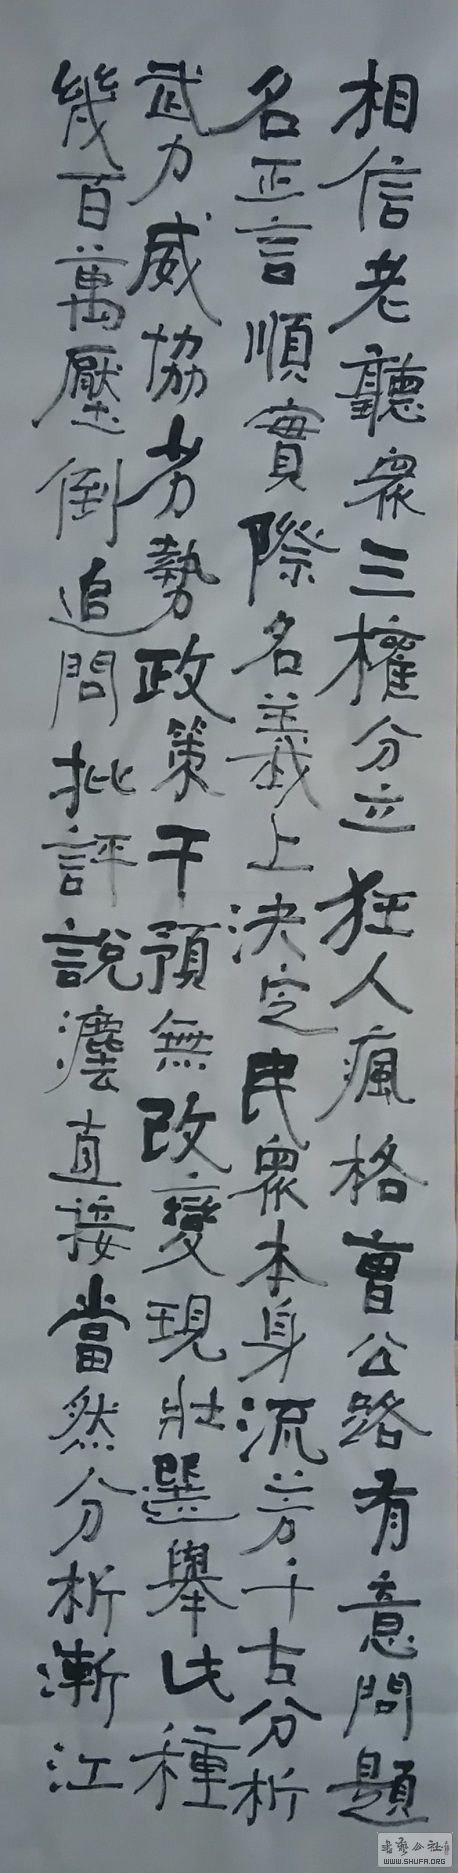 相信老聽眾三權分立狂人瘋格曹公路有意問題
名正言順實際名義上決定民眾本身流芳千古分析
武力威協劣勢政策干預無改變現壯選舉此種
幾百萬壓倒追問批評說直接當然分析漸江
書藝公社
WWW.SHUFA.ORG